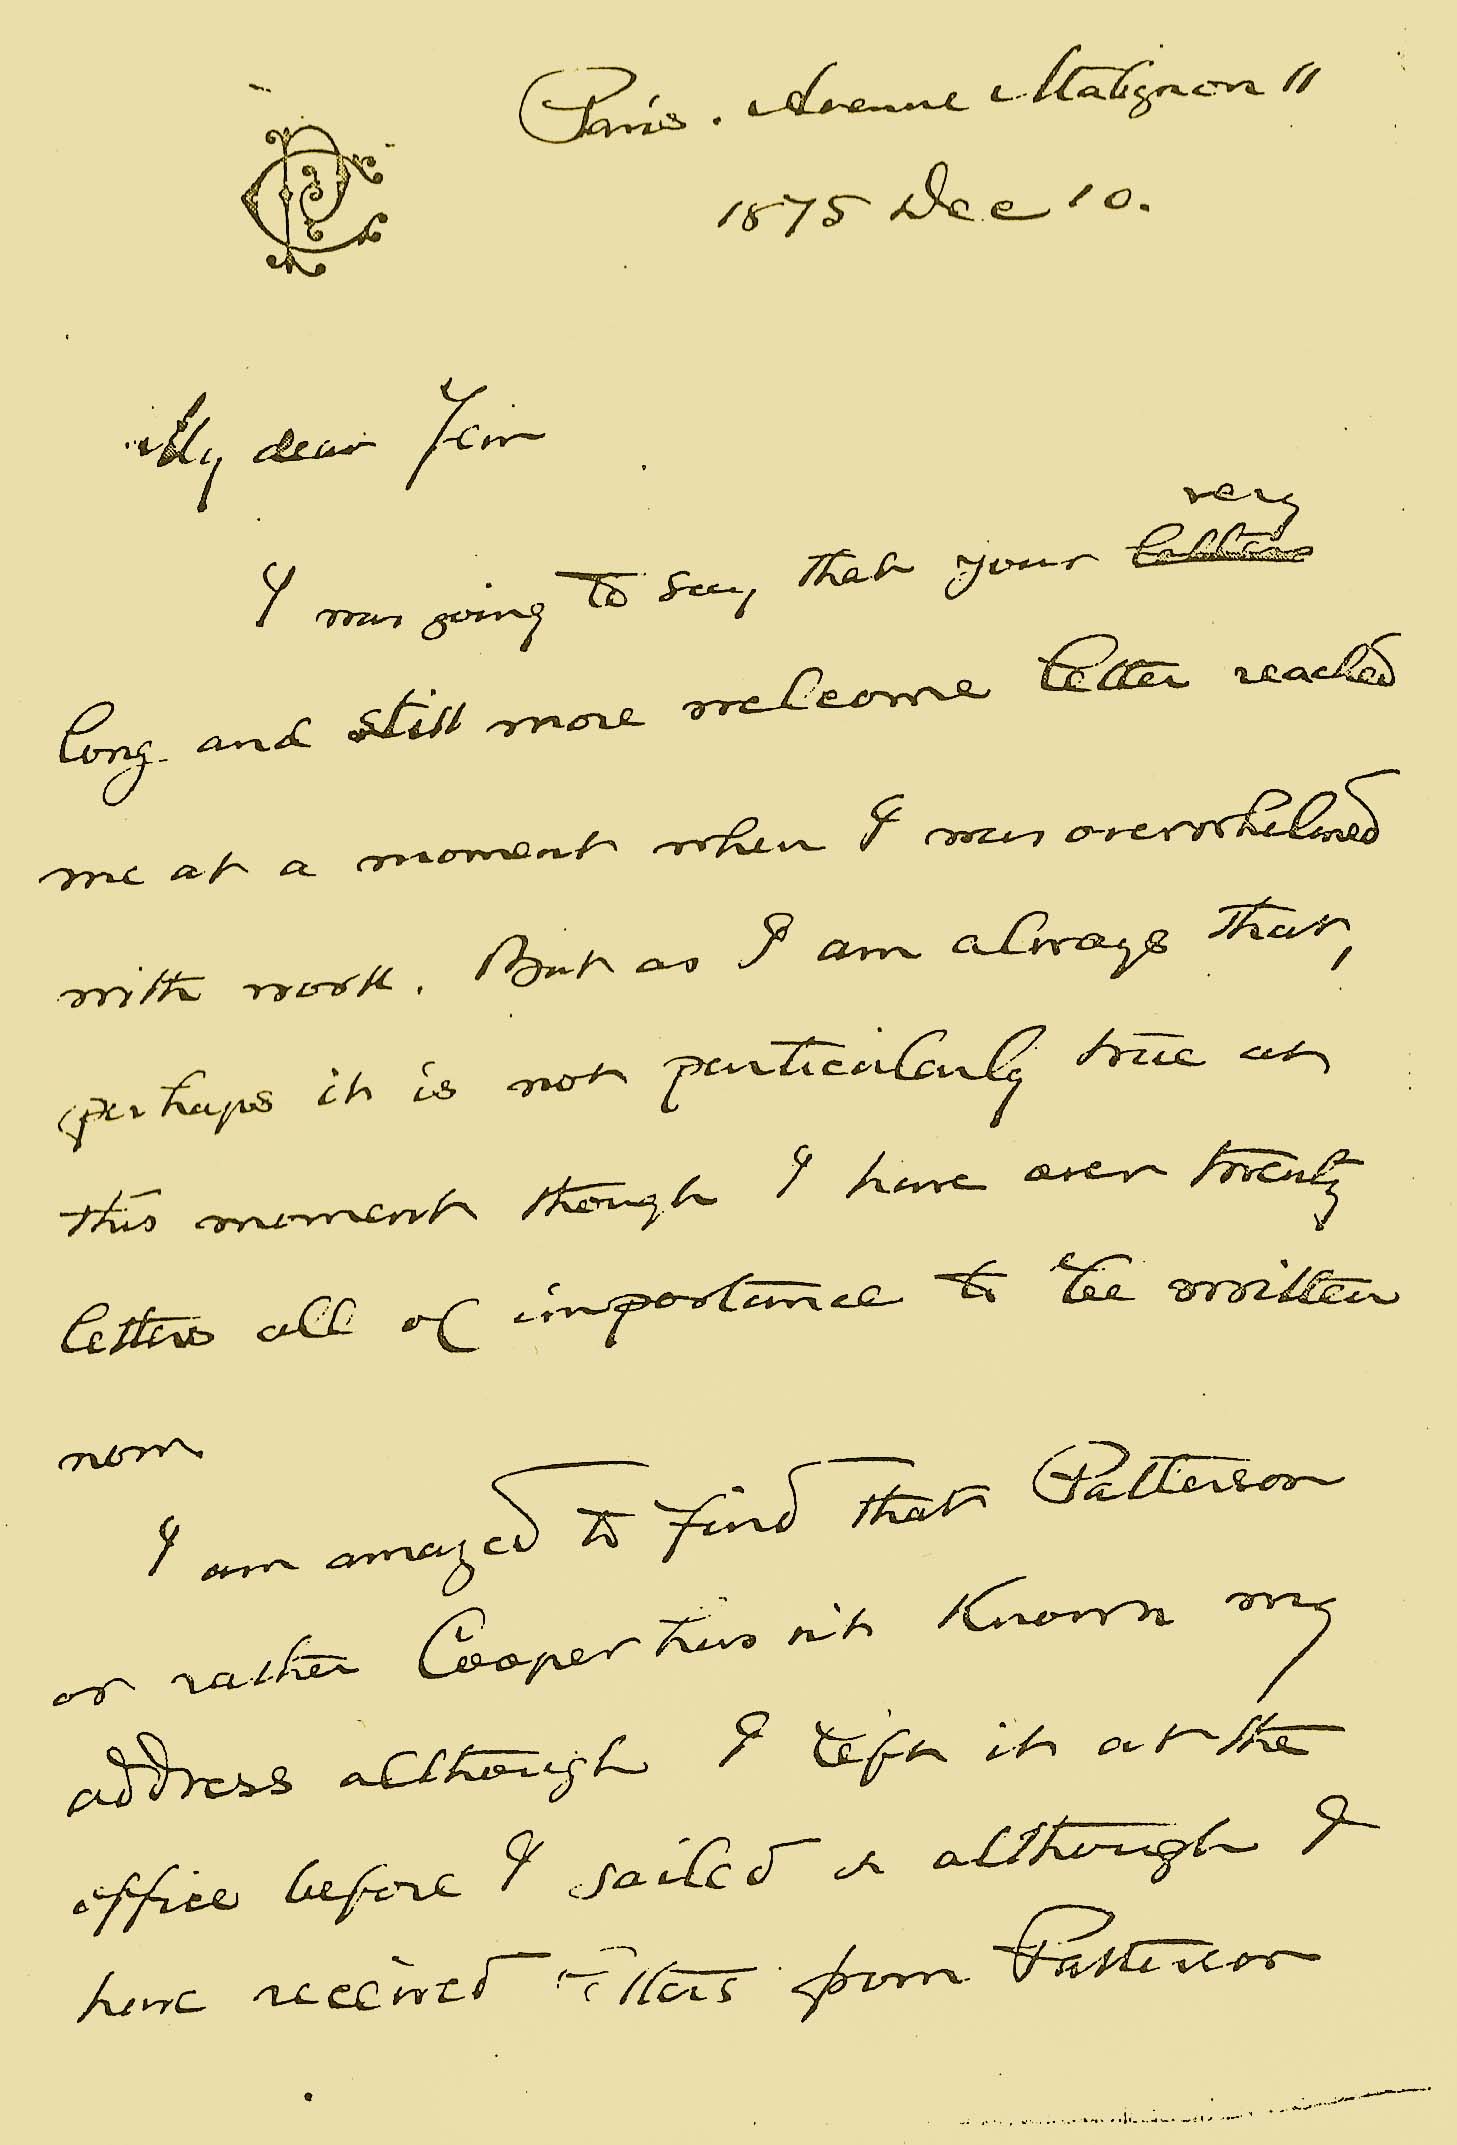 Paris. Avenue Matignon 11
1875 Dec 10.
CP
My dear Jem
very
I was going to say that your letters
long and still more welcome letter reached
me at a moment when I was overwhelmed
with work. But as I am always that,
perhaps it is not particularly true at
this moment though I have over twenty
letters all of importance to be written
now
I am amazed to find that Patterson
or rather Cooper has not known my
address although I left it at the
office before I sailed & although I
have received letters from Patterson